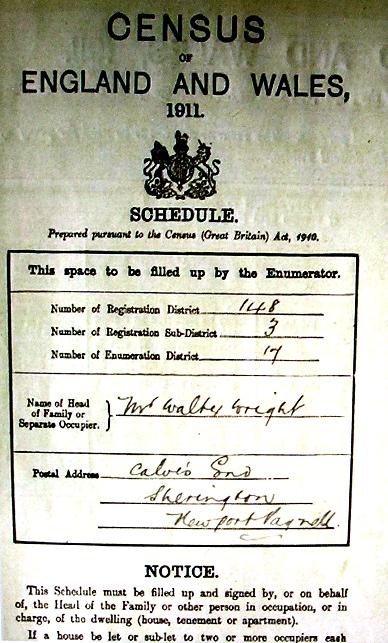 CENSUS
OF
ENGLAND AND WALES,
1911.
SCHEDULE.
Prepared pursuant to the Census (Great Britain) Act, 1910.
This space to be filled up by the Enumerator.
Number of Registration District 148
Number of Registration Sub-District 3
Number of Enumeration District 17
Name of Head
of Family or
Separate Occupier. } Mr Walter Wright
Postal Address Calves End
Sherington
Newport Pagnell.
NOTICE.
This Schedule must be filled up and signed by, or on behalf
of, the Head of the Family or other person in occupation, or in
charge, of the dwelling (house, tenement or apartment).
If a house be let or sub-let to two or more occupiers each